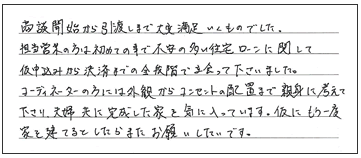 商談開始から引渡しまで大変満足いくものでした。
担当営業の方は初めての事で不安の多い住宅ローンに関して
仮申込みから決済までの全段階で立会って下さいました。
コーディネーターの方には外観からコンセントの配置まで親身に考えて
下さり、夫婦共に完成した家を気に入っています。仮にもう一度
家を建てるとしたらまたお願いしたいです。